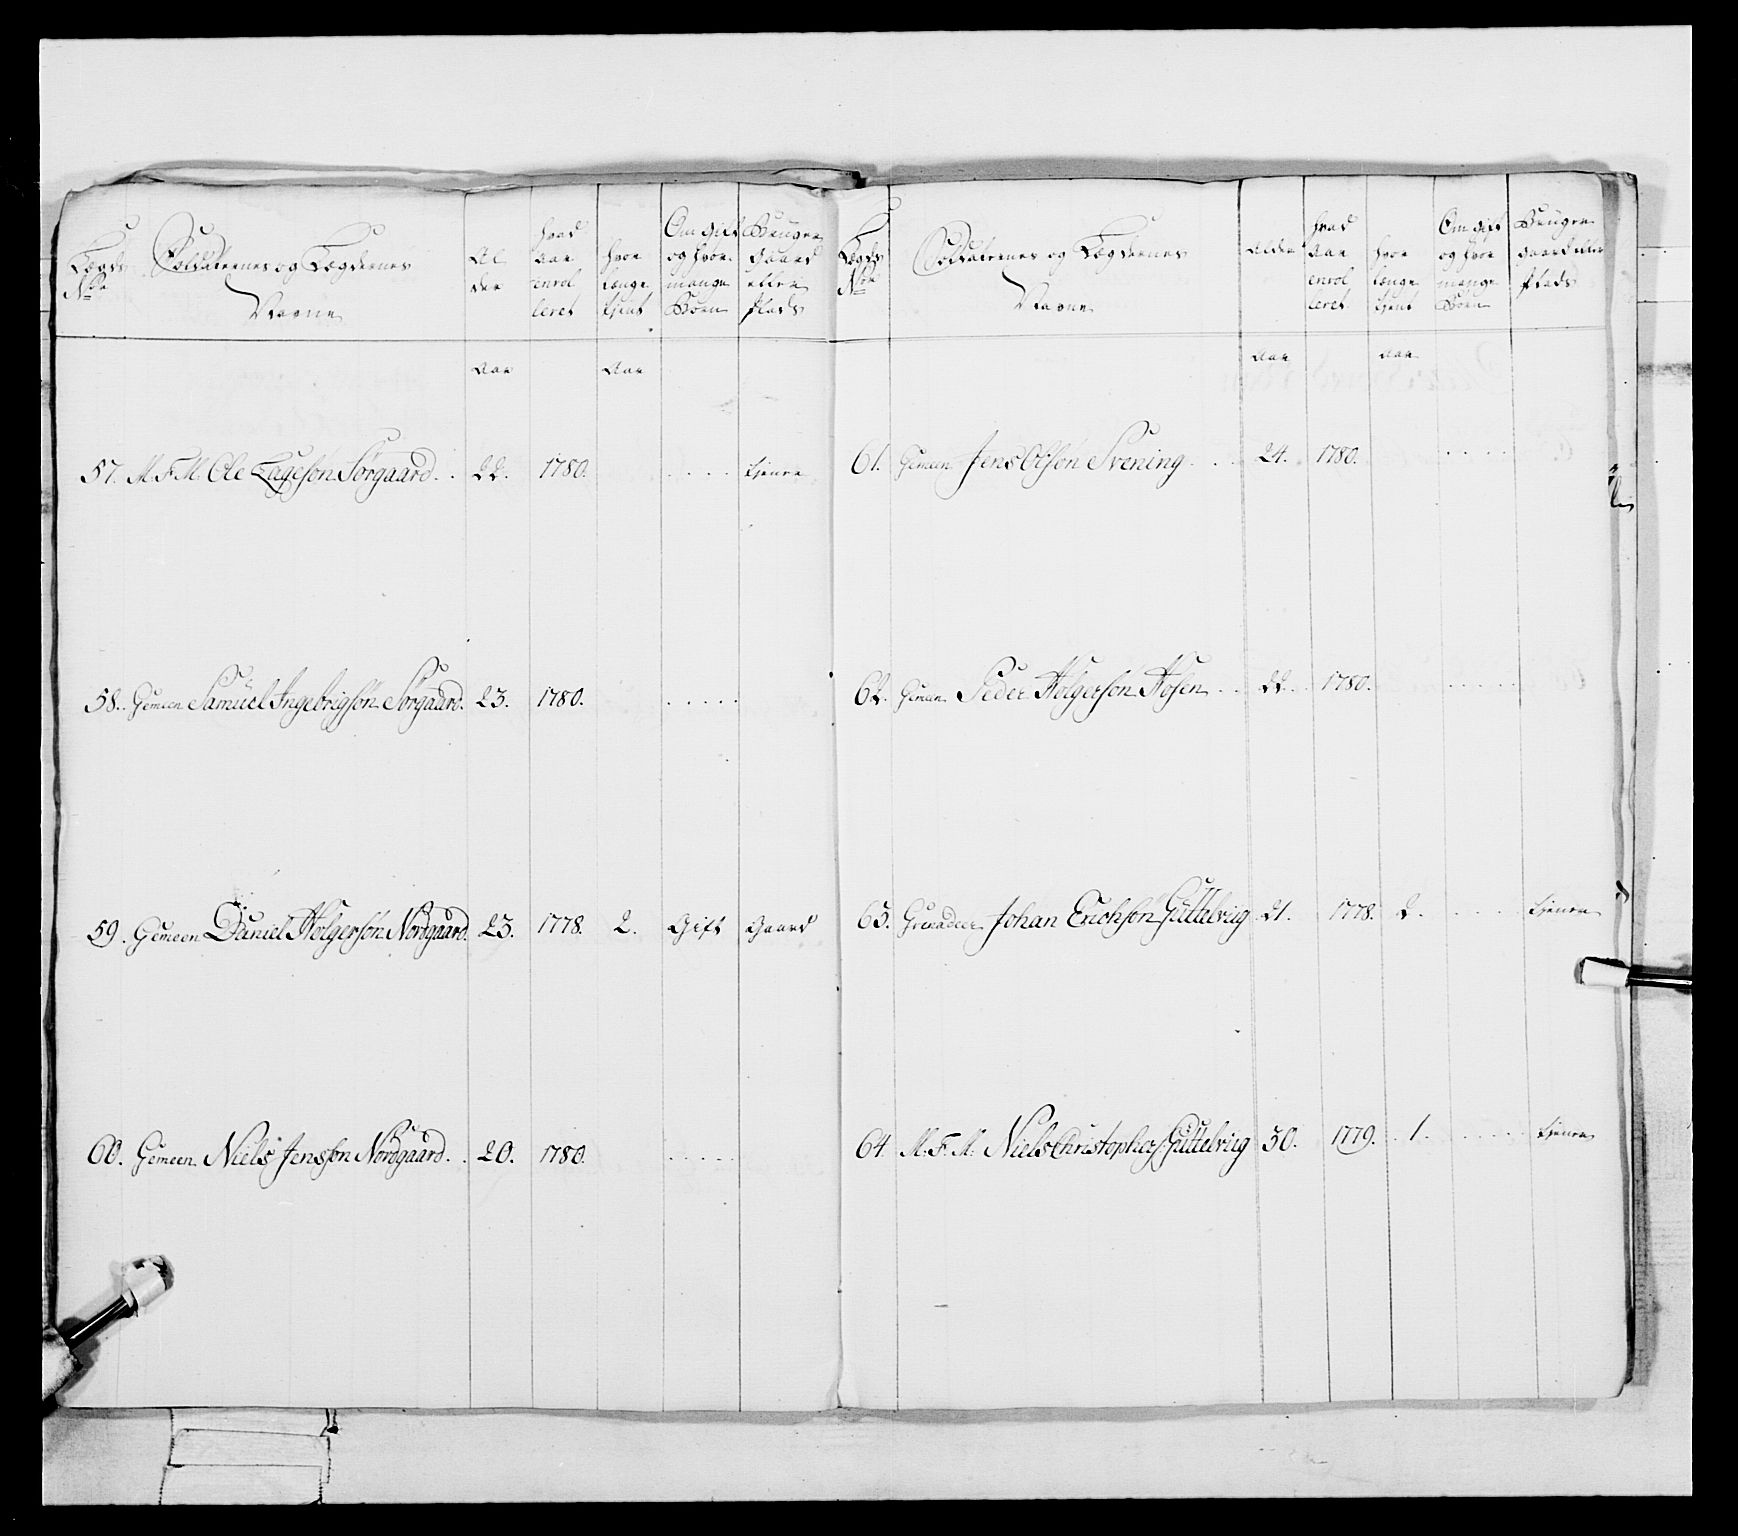 Lægds No
Soldaternes og Lægdernes
Navne
Al
der
hvad
Aar
enrol
leret
hvor
længe
tjent
Om gift
og hvor
mange
Børn
Bruger
Gaard
eller
Plads
Aar
Aar
57. M.F.M. Ole Tageson Sørgaard. . 22. 1780. . . . . tjener
58. Gemeen Samuel Ingebrigson Sørgaard. 23. 1780. . . . . .
59. Gemeen Daniel Holgerson Nordgaard. 23. 1778. 2. Gift Gaard
60. Gemeen Niels Jensson Nordgaard. . 20. 1780. . . . . .
Lægds No
Soldaternes og Lægdernes
Navne
Alder
hvad
Aar
enrol
leret
hvor
længe
tjent
Om gift
og hvor
mange
Børn
Bruger
Gaard eller
Plads
Aar
Aar
61. Gemeen Jens Olson Svening. . . 24. 1780. . . . .
62. Gemeen Peder Holgerson Hosen. . . 22. . 1780. . . . . .
63. Grenadeer Johan Erichson Guttelvig 21. 1778. 2. . . . . tjener
64 M.F.M. Niels Christophers: Guttelvig 30. 1779. . 1. . . . . . tjener